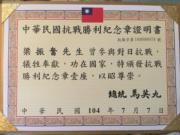 中華民國抗戰勝利紀念章證明書
梁振奮先生曾參與對日抗戰，
犧牲奉獻，功在國家，特頒發抗戰
勝利紀念章壹座，以昭尊崇。
總統 馬英九
中華民國 104 年 7 月 7 日